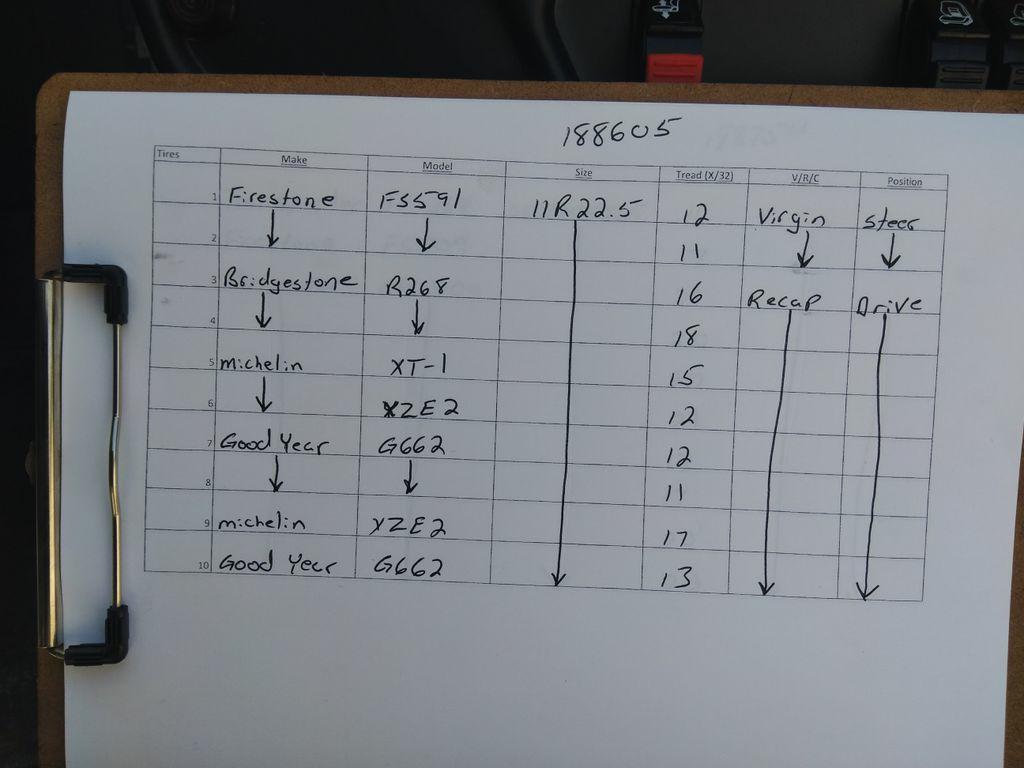 188605
Tires Make Model Size Tread (X/32) V/R/C Position
1 Firestone FS591 11R22.5 12 Virgin Steer
2 ↓ ↓ 11 ↓ ↓
3 Bridgestone R268 16 Recap Drive
4 ↓ ↓ 18
5 michelin XT-1 15
6 ↓ XZE2 12
7 Good Year G662 12
8 ↓ ↓ 11
9 michelin XZE2 17
10 Good Year G662 13